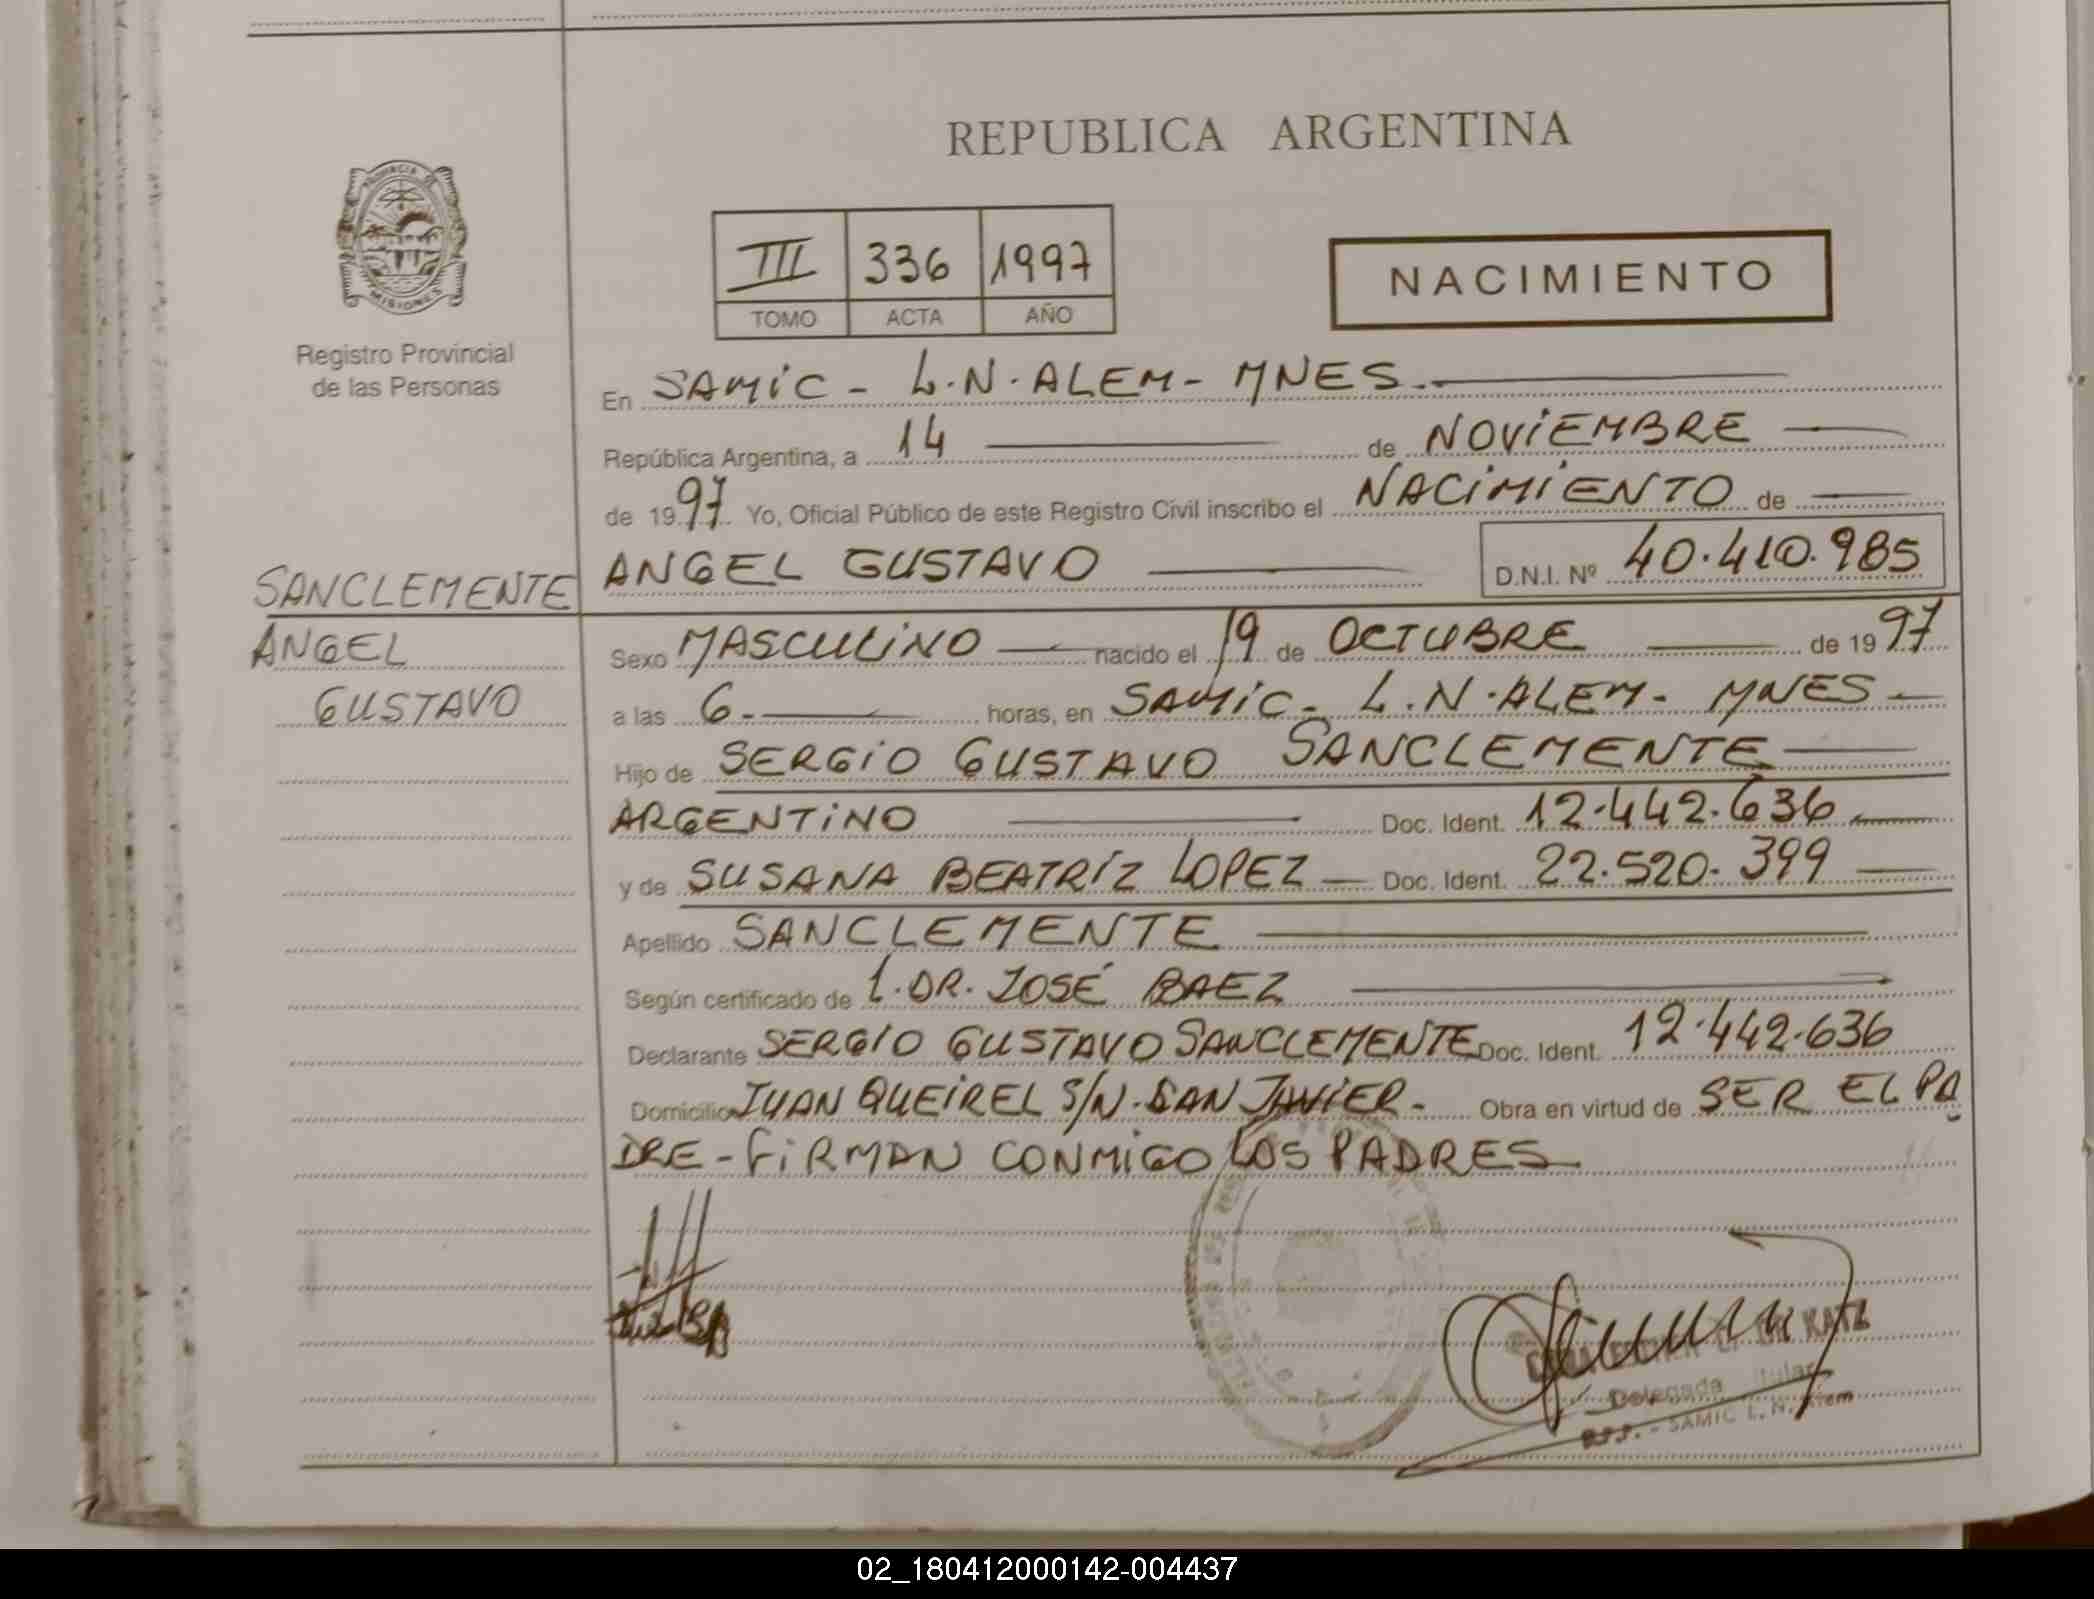 REPUBLICA ARGENTINA
PROVINCIA DE
MISIONES
Registro Provincial
de las Personas
III 336 1997
TOMO ACTA AÑO
NACIMIENTO
En SAMIC - L.N. ALEM - MNES.
República Argentina, a 14 de NOVIEMBRE
de 1997 Yo, Oficial Público de este Registro Civil inscribo el NACIMIENTO de
ANGEL GUSTAVO D.N.I. Nº 40.410.985
SANCLEMENTE
ANGEL
GUSTAVO
Sexo MASCULINO nacido el 19 de OCTUBRE de 1997
a las 6.- horas, en SAMIC - L.N. ALEM - MNES -
Hijo de SERGIO GUSTAVO SANCLEMENTE
ARGENTINO Doc. Ident. 12.442.636
y de SUSANA BEATRIZ LOPEZ - Doc. Ident. 22.520.399
Apellido SANCLEMENTE
Según certificado de l. DR. JOSÉ BAEZ
Declarante SERGIO GUSTAVO SANCLEMENTE Doc. Ident. 12.442.636
Domicilio JUAN QUEIREL S/N. SAN JAVIER - Obra en virtud de SER EL PA
DRE - FIRMAN CONMIGO LOS PADRES
DE KATZ
Delegada Titular
SAMIC L.N. Alem
02_180412000142-004437